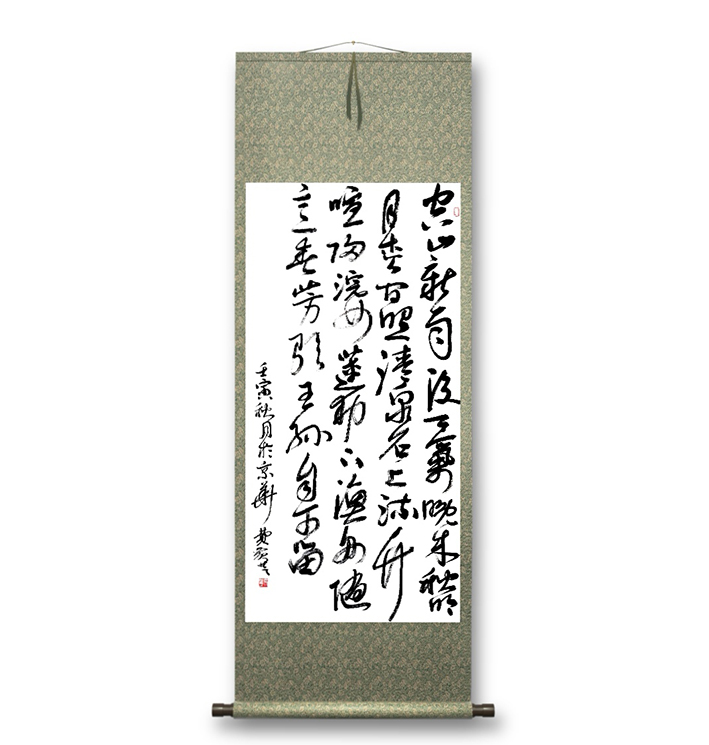 空山新雨後天氣晚來秋明
月松間照清泉石上流竹
喧歸浣女蓮動下漁舟隨
意春芳歇王孫自可留
壬寅秋月於京華